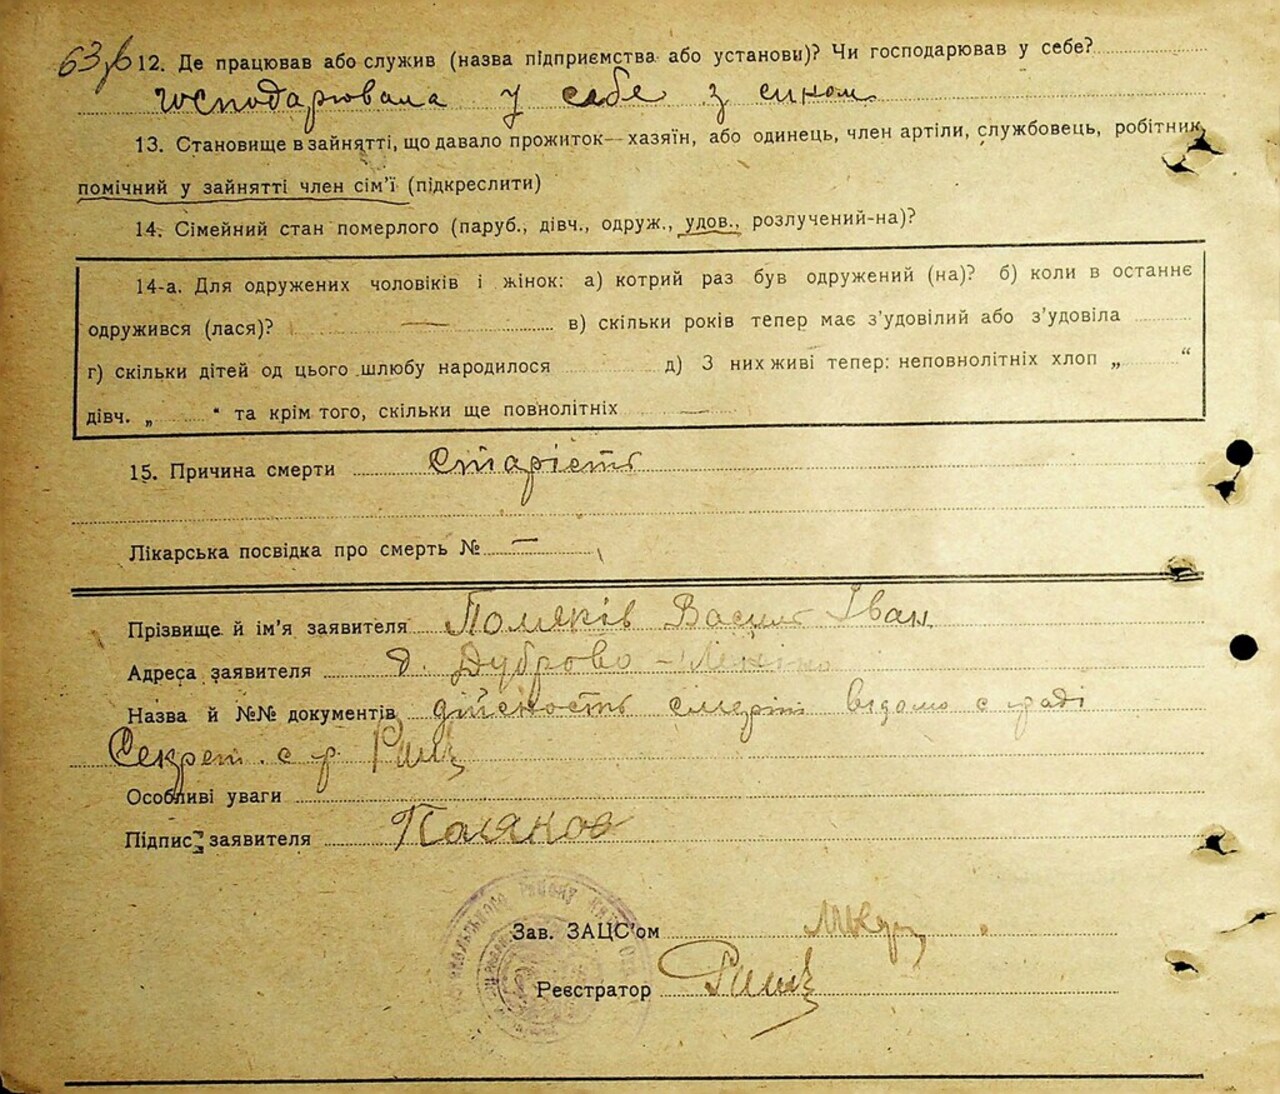 63зв
12. Де працював або служив (назва підприємства або установи)? Чи господарював у себе?
господарювала у себе з сином
13. Становище в зайнятті, що давало прожиток — хазяїн, або одинець, член артіли, службовець, робітник,
помічний у зайнятті член сім'ї (підкреслити)
14. Сімейний стан померлого (паруб., дівч., одруж., удов., розлучений-на)?
14-а. Для одружених чоловіків і жінок: а) котрий раз був одружений (на)? б) коли в останнє
одружився (лася)? — в) скільки років тепер має з'удовілий або з'удовіла
г) скільки дітей од цього шлюбу народилося д) З них живі тепер: неповнолітніх хлоп „ “
дівч. „ “ та крім того, скільки ще повнолітніх —
15. Причина смерти Старість
Лікарська посвідка про смерть № —
Прізвище й ім'я заявителя Поляків Василь Іван
Адреса заявителя д. Дуброво-
Назва й №№ документів дійсность смерти відомо с раді
Секрет. с р.
Особливі уваги
Підпис заявителя Паляков
Зав. ЗАЦС'ом
Реєстратор